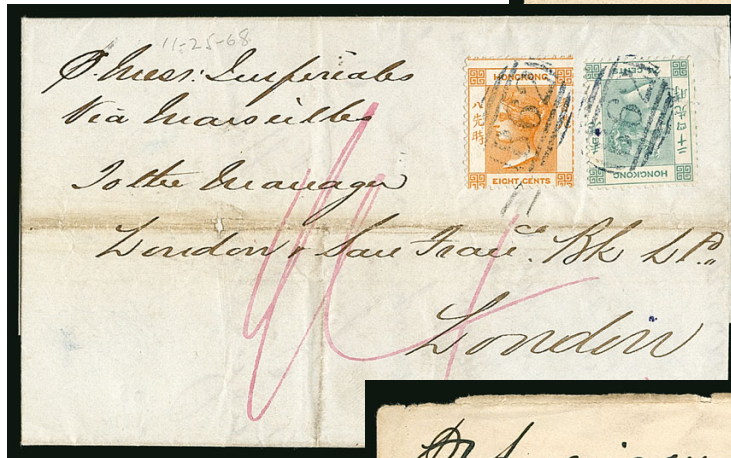 11-25-68
P. Mess: Imperiales
Via Marseilles
To the Manager
London & San Fran.co Bk Ld.
London
HONGKONG
八先時
EIGHT CENTS
62
CENTS
時先四十二
HONGKONG